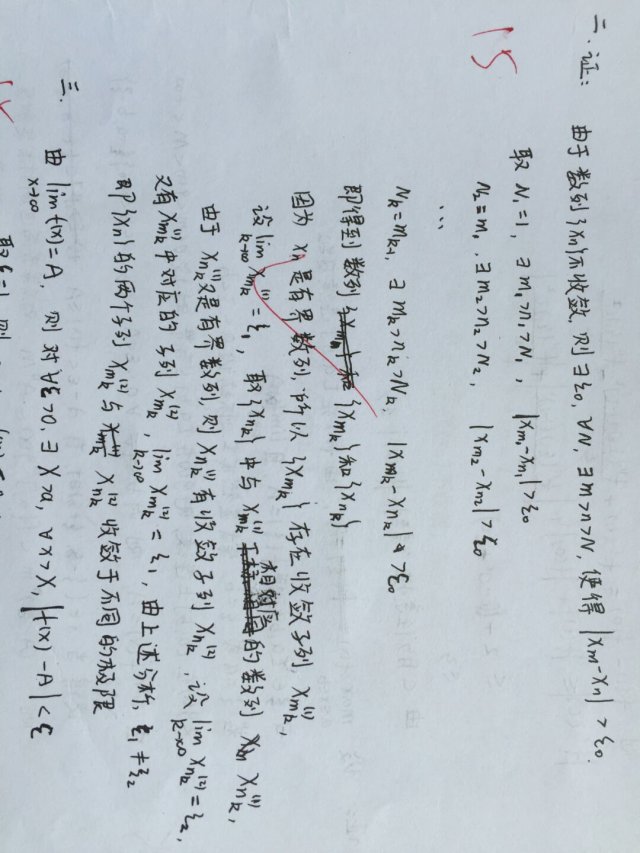 二. 证: 由于数列{xn}不收敛, 则∃ε₀, ∀N, ∃m>n>N, 使得 |xm-xn|>ε₀.
15
取 N₁=1, ∃m₁>n₁>N₁, |xm₁-xn₁|>ε₀
N₂=m₁, ∃m₂>n₂>N₂, |xm₂-xn₂|>ε₀
...
Nk=mk-1, ∃mk>nk>Nk, |xmk-xnk|>ε₀
即得到数列 {xmk}和{xnk}
因为 xn 是有界数列, 所以 {xmk} 存在收敛子列, xmk⁽¹⁾,
设 lim k→∞ xmk⁽¹⁾=ξ₁, 取{xnk}中与 xmk⁽¹⁾ 相对应的数列 xnk⁽¹⁾,
由于 xnk⁽¹⁾又是有界数列, 则 xnk⁽¹⁾有收敛子列 xnk⁽²⁾, 设 lim k→∞ xnk⁽²⁾=ξ₂,
又有 xmk⁽¹⁾中对应的子列 xmk⁽²⁾, lim k→∞ xmk⁽²⁾=ξ₁, 由上述分析, ξ₁≠ξ₂
即{xn}的两个子列 xmk⁽²⁾与 xnk⁽²⁾收敛于不同的极限
三.
由 lim x→∞ f(x)=A, 则对∀ε>0, ∃X>a, ∀x>X, |f(x)-A|<ε
取ε=1, 则